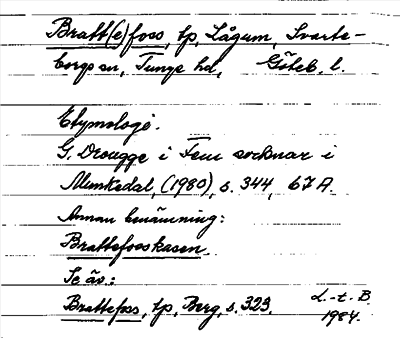 Bratt(e)foss, tp, Lågum, Svarte-
borgs sn, Tunge hd, Göteb. l.
Etymologi.
G. Drougge i Fem socknar i
Munkedal, (1980), s. 344, 67A.
Annan benämning:
Brattefosskasen.
Se äv.:
Brattefoss, tp, Berg, s. 323. L.-t. B.
1984.